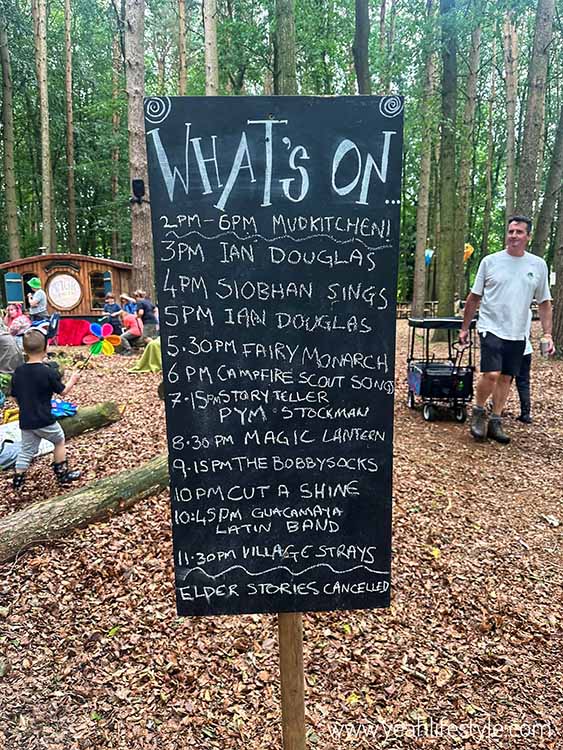 WHAT'S ON...
2PM-6PM MUDKITCHEN!
3PM IAN DOUGLAS
4PM SIOBHAN SINGS
5PM IAN DOUGLAS
5.30PM FAIRY MONARCH
6PM CAMPFIRE SCOUT SONGS
7.15PM STORY TELLER
PYM STOCKMAN
8.30PM MAGIC LANTERN
9.15PM THE BOBBYSOCKS
10PM CUT A SHINE
10:45PM GUACAMAYA
LATIN BAND
11.30PM VILLAGE STRAYS
ELDER STORIES CANCELLED
www.yeahlifestyle.com